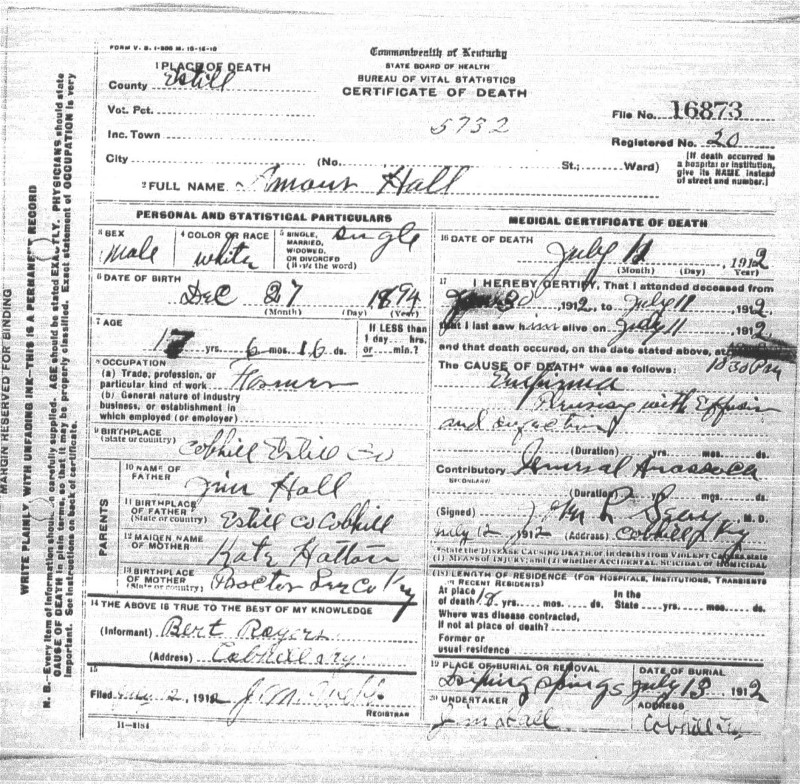 FORM V. S. 1-500 M. 10-16-10
Commonwealth of Kentucky
STATE BOARD OF HEALTH
BUREAU OF VITAL STATISTICS
CERTIFICATE OF DEATH
1 PLACE OF DEATH
County Estill
Vot. Pct.
Inc. Town
City (No. St.; Ward)
5732
File No. 16873
Registered No. 20
(If death occurred in a hospital or institution, give its NAME instead of street and number.)
2 FULL NAME Amour Hall
PERSONAL AND STATISTICAL PARTICULARS
3 SEX
Male
4 COLOR OR RACE
White
5 SINGLE, MARRIED, WIDOWED, OR DIVORCED (Write the word)
Single
6 DATE OF BIRTH
Dec 27 1894
(Month) (Day) (Year)
7 AGE
17 yrs. 6 mos. 16 ds.
If LESS than 1 day... hrs. or... min.?
8 OCCUPATION
(a) Trade, profession, or particular kind of work Farmer
(b) General nature of industry business, or establishment in which employed (or employer)
9 BIRTHPLACE
(State or country)
Cobhill Estill Co
PARENTS
10 NAME OF FATHER
Jim Hall
11 BIRTHPLACE OF FATHER (State or country)
Estill Co Cobhill
12 MAIDEN NAME OF MOTHER
Kate Hatton
13 BIRTHPLACE OF MOTHER (State or country)
Proctor Lee Co Ky
14 THE ABOVE IS TRUE TO THE BEST OF MY KNOWLEDGE
(Informant) Bert Rogers
(Address) Cobhill Ky
15
Filed 1912
REGISTRAR
11-3184
MEDICAL CERTIFICATE OF DEATH
16 DATE OF DEATH
July 12 1912
(Month) (Day) (Year)
17 I HEREBY CERTIFY, That I attended deceased from
1912, to July 11 1912
that I last saw him alive on July 11 1912
and that death occured, on the date stated above, at
1030 PM
The CAUSE OF DEATH* was as follows:
Pleurisy with Effusion
and
(Duration) yrs. mos. ds.
Contributory General
SECONDARY
(Duration) yrs. mos. ds.
(Signed) M. D.
July 12, 1912 (Address) Cobhill Ky
*State the DISEASE CAUSING DEATH, or in deaths from VIOLENT CAUSES state (1) MEANS OF INJURY; and (2) whether ACCIDENTAL, SUICIDAL or HOMICIDAL
(18) LENGTH OF RESIDENCE (FOR HOSPITALS, INSTITUTIONS, TRANSIENTS OR RECENT RESIDENTS)
At place of death yrs. mos. ds. In the State yrs. mos. ds.
Where was disease contracted, if not at place of death?
Former or usual residence
19 PLACE OF BURIAL OR REMOVAL
Springs
DATE OF BURIAL
July 13 1912
20 UNDERTAKER
Jim Hall
ADDRESS
Cobhill Ky
MARGIN RESERVED FOR BINDING
WRITE PLAINLY, WITH UNFADING INK—THIS IS A PERMANENT RECORD
N. B.—Every item of information should be carefully supplied. AGE should be stated EXACTLY. PHYSICIANS should state
CAUSE OF DEATH in plain terms, so that it may be properly classified. Exact statement of OCCUPATION is very
important. See instructions on back of certificate.